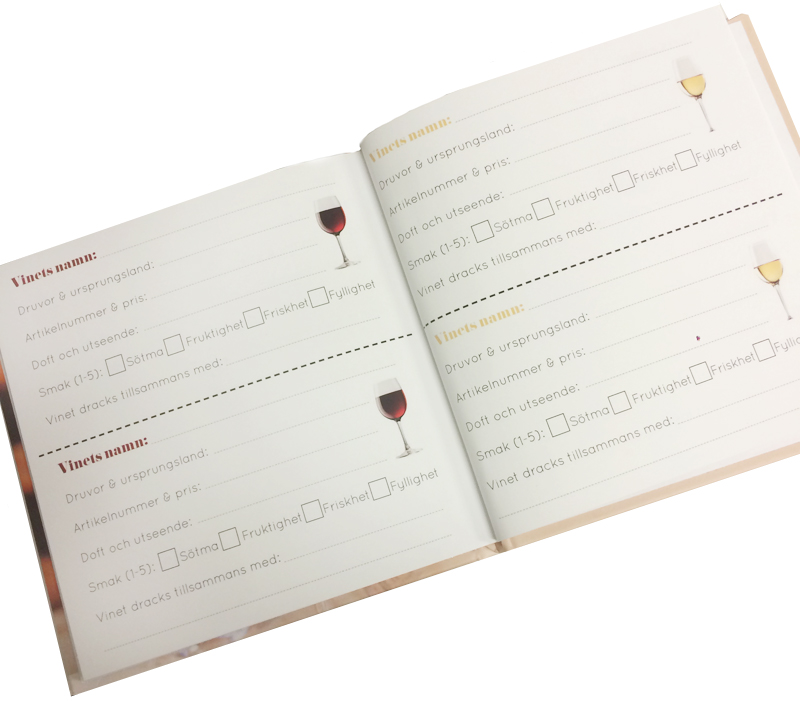 Vinets namn:
Druvor & ursprungsland:
Artikelnummer & pris:
Doft och utseende:
Smak (1-5): Sötma Fruktighet Friskhet Fyllighet
Vinet dracks tillsammans med:
Vinets namn:
Druvor & ursprungsland:
Artikelnummer & pris:
Doft och utseende:
Smak (1-5): Sötma Fruktighet Friskhet Fyllighet
Vinet dracks tillsammans med:
Vinets namn:
Druvor & ursprungsland:
Artikelnummer & pris:
Doft och utseende:
Smak (1-5): Sötma Fruktighet Friskhet Fyllighet
Vinet dracks tillsammans med:
Vinets namn:
Druvor & ursprungsland:
Artikelnummer & pris:
Doft och utseende:
Smak (1-5): Sötma Fruktighet Friskhet
Vinet dracks tillsammans med: